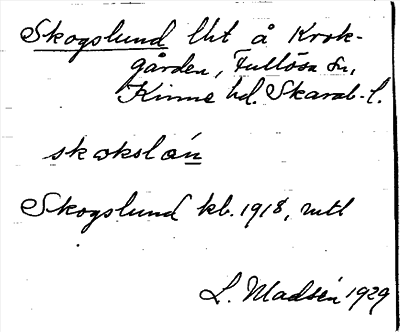 Skogslund lht å Krok-
gården, Fullösa sn,
Kinne hd. Skarab. l.
skokslón
Skogslund kb. 1918, mtl
L. Madsén 1929